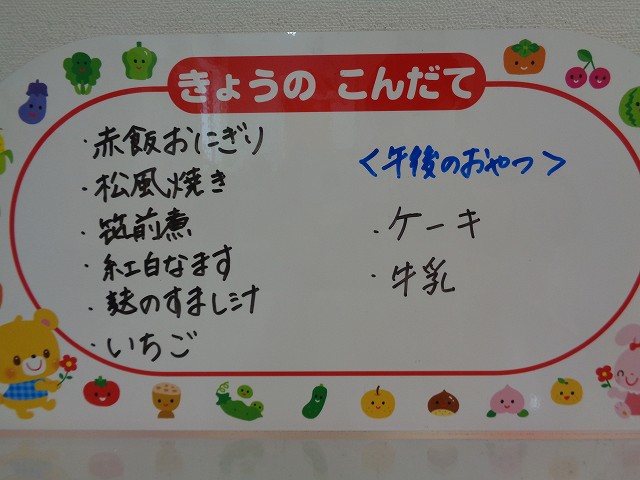 きょうの こんだて
・赤飯おにぎり
・松風焼き
・筑前煮
・紅白なます
・麩のすまし汁
・いちご
<午後のおやつ>
・ケーキ
・牛乳